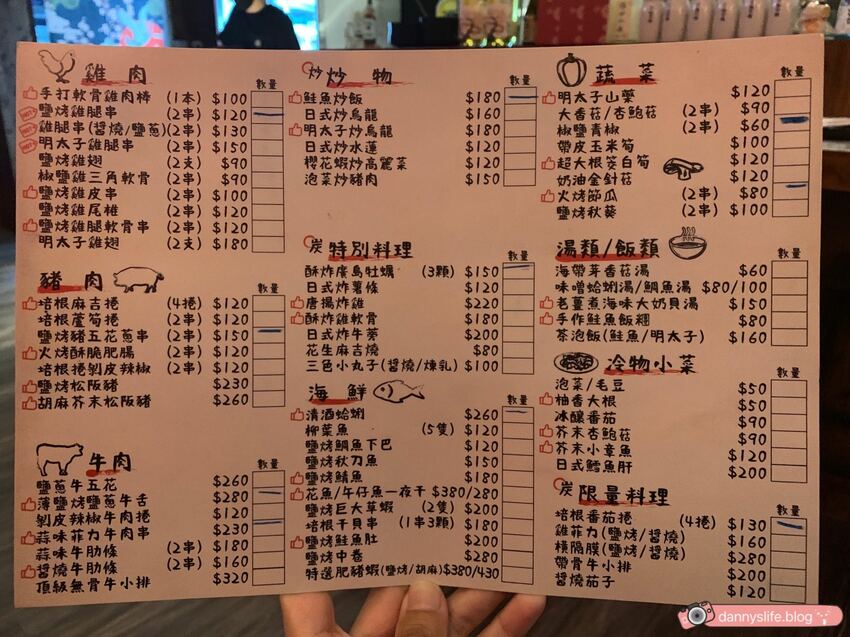 雞肉 數量
手打軟骨雞肉棒 (1本) $100
鹽烤雞腿串 (2串) $120
雞腿串(醬燒/鹽蔥)(2串) $130
明太子雞腿串 (2串) $150
鹽烤雞翅 (2支) $90
椒鹽雞三角軟骨 (2串) $90
鹽烤雞皮串 (2串) $100
鹽烤雞尾椎 (2串) $120
鹽烤雞腿軟骨串 (2串) $120
明太子雞翅 (2支) $180
豬肉 數量
培根麻吉捲 (4捲) $120
培根蘆筍捲 (2串) $120
鹽烤豬五花蔥串 (2串) $150
火烤酥脆肥腸 (2串) $120
培根捲剝皮辣椒 (2串) $120
鹽烤松阪豬 $230
胡麻芥末松阪豬 $260
牛肉 數量
鹽蔥牛五花 $260
薄鹽烤鹽蔥牛舌 $280
剝皮辣椒牛肉捲 $120
蒜味菲力牛肉串 $230
蒜味牛肋條 (2串) $180
醬燒牛肋條 (2串) $160
頂級無骨牛小排 $320
炒 炒物 數量
鮭魚炒飯 $180
日式炒烏龍 $160
明太子炒烏龍 $180
日式炒水蓮 $120
櫻花蝦炒高麗菜 $120
泡菜炒豬肉 $150
炭 特別料理 數量
酥炸廣島牡蠣 (3顆) $150
日式炸薯條 $120
唐揚炸雞 $220
酥炸雞軟骨 $180
日式炸牛蒡 $200
花生麻吉燒 $80
三色小丸子(醬燒/煉乳) $100
海鮮 數量
清酒蛤蜊 $260
柳葉魚 (5隻) $120
鹽烤鯛魚下巴 $120
鹽烤秋刀魚 $150
鹽烤鯖魚 $180
花魚/午仔魚一夜干 $380/280
鹽烤巨大草蝦 (2隻) $200
培根干貝串 (1串3顆) $180
鹽烤鮭魚肚 $200
鹽烤中卷 $280
特選肥豬蝦(鹽烤/胡麻) $380/430
蔬菜 數量
明太子山藥 $120
大香菇/杏鮑菇 (2串) $90
椒鹽青椒 (2串) $60
帶皮玉米筍 $100
超大根茭白筍 $120
奶油金針菇 $120
火烤節瓜 (2串) $80
鹽烤秋葵 (2串) $100
湯類/飯類 數量
海帶芽香菇湯 $60
味噌蛤蜊湯/鯛魚湯 $80/100
老薑煮海味大奶貝湯 $150
手作鮭魚飯糰 $80
茶泡飯(鮭魚/明太子) $160
冷物小菜 數量
泡菜/毛豆 $50
柚香大根 $50
冰釀番茄 $90
芥末杏鮑菇 $90
芥末小章魚 $120
日式鱈魚肝 $200
炭 限量料理 數量
培根番茄捲 (4捲) $130
雞菲力(鹽烤/醬燒) $160
橫隔膜(鹽烤/醬燒) $280
帶骨牛小排 $200
醬燒茄子 $120
dannyslife.blog